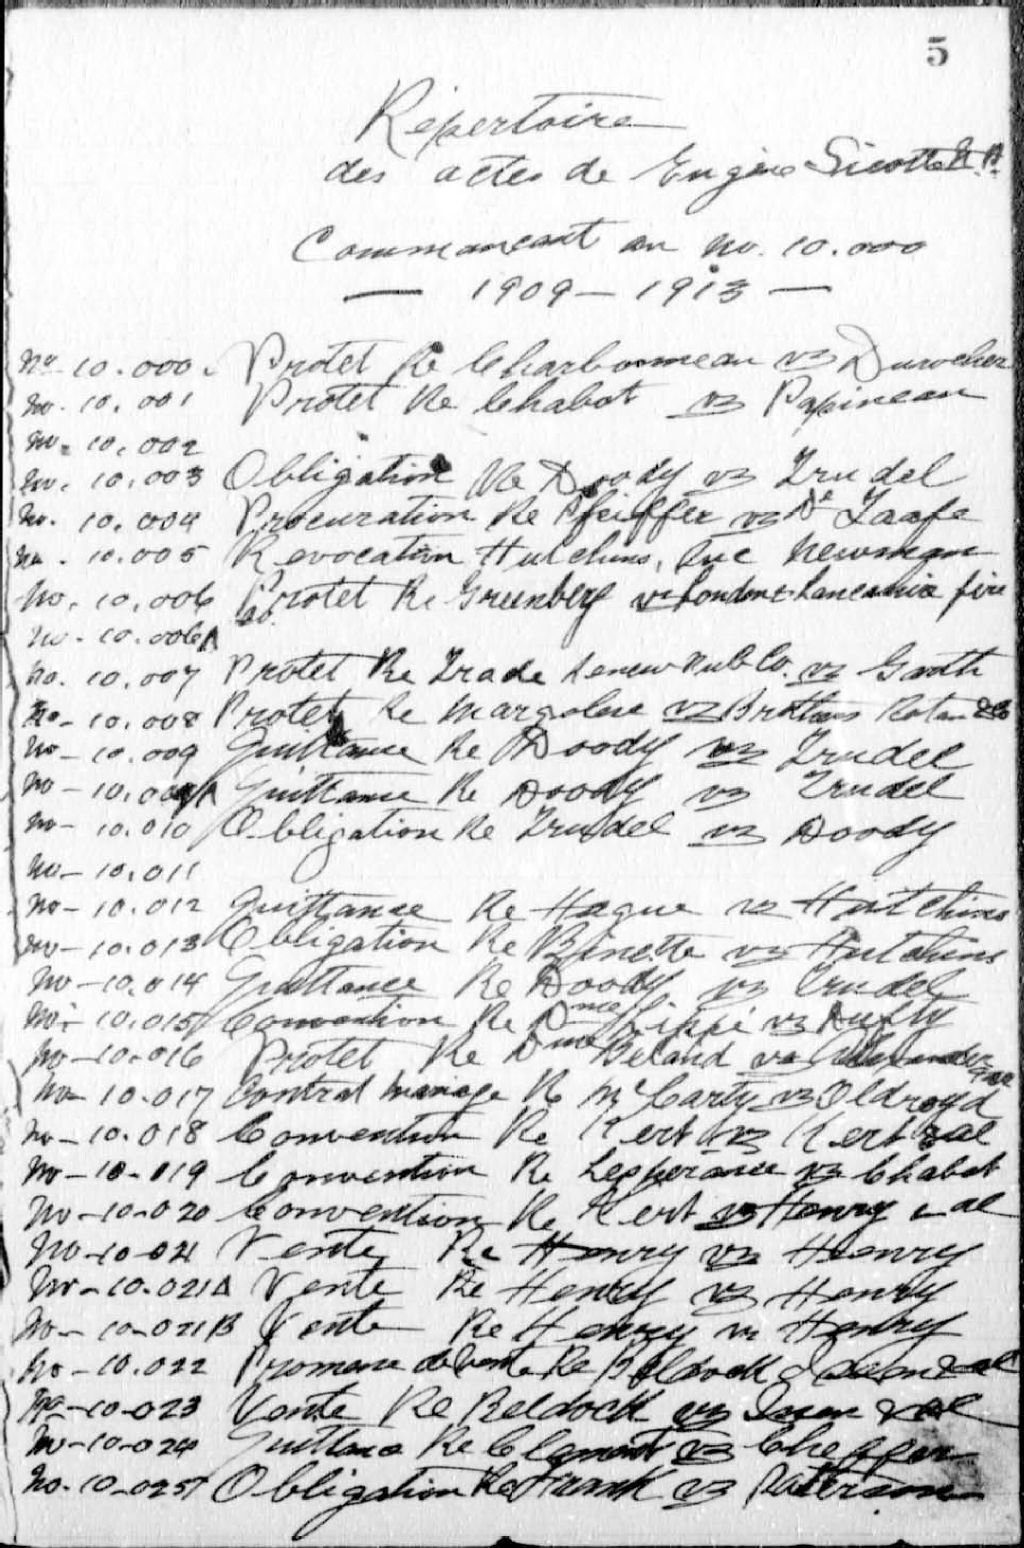 5
Répertoire
des actes de Eugène Sicotte N.P.
Commencant au no. 10.000
— 1909 — 1913 —
No 10.000. Protet Re Charbonneau vs Durocher
no. 10.001 Protet Re Chabot vs Papineau
no. 10.002
no. 10.003 Obligation Re Doody vs Trudel
no. 10.004 Procuration Re Pfeiffer vs
no. 10.005 Revocation Hutchins, Newman
no. 10.006 Protet Re Greenberg vs London & Lancashire fire
Co.
no. 10.006A
no. 10.007 Protet Re Trade Pub Co. vs
no. 10.008 Protet Re Margolese vs
no - 10.009 Quittance Re Doody vs Trudel
no - 10.009A Quittance Re Doody vs Trudel
no - 10.010 Obligation Re Trudel vs Doody
no - 10.011
no - 10.012 Quittance Re Hague vs Hutchins
no - 10.013 Obligation Re Binette vs Hutchins
no - 10.014 Quittance Re Doody vs Trudel
no - 10.015 Convention Re Dme Lippé vs Duffy
no - 10.016 Protet Re Dme Beland vs Alexander
no - 10.017 Contrat mariage Re McCarty vs Oldroyd
no - 10.018 Convention Re Kert vs Kert & al
no - 10-019 Convention Re Lesperance vs Chabot
no - 10-020 Convention Re Kert vs Henry & al
no - 10-021 Vente Re Henry vs Henry
no - 10.021A Vente Re Henry vs Henry
no - 10-021B Vente Re Henry vs Henry
no - 10.022 Promesse de Vente Re Beldock & al
no - 10-023 Vente Re Beldock vs & al
no - 10-024 Quittance Re Clement vs
no. 10-025 Obligation Re Frank vs Patterson